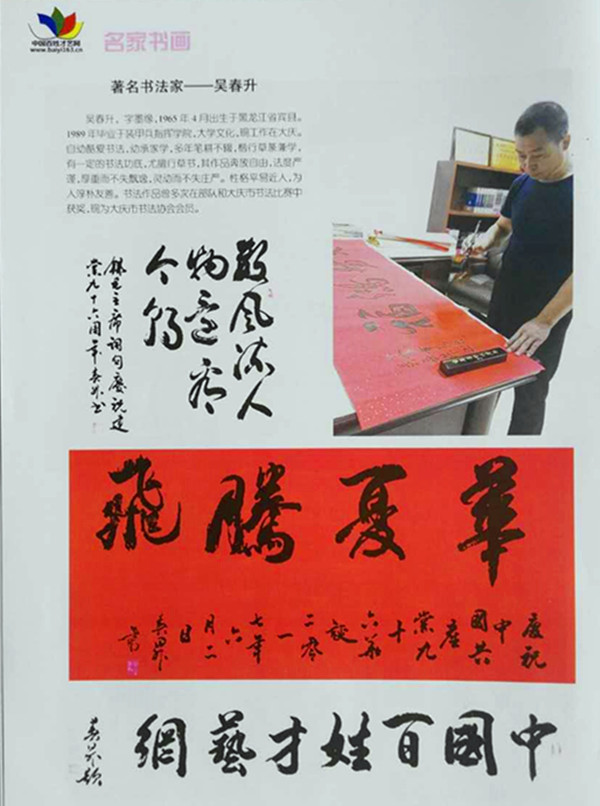 中国百姓才艺网
www.baiyi163.cn
名家书画
著名书法家——吴春升
吴春升，字墨缘，1965年4月出生于黑龙江省宾县。
1989年毕业于装甲兵指挥学院，大学文化，现工作在大庆。
自幼酷爱书法，幼承家学，多年笔耕不辍，楷行草篆兼学，
有一定的书法功底，尤擅行草书，其作品奔放自由，法度严
谨，厚重而不失飘逸，灵动而不失庄严。性格平易近人，为
人淳朴友善。书法作品曾多次在部队和大庆市书法比赛中
获奖，现为大庆市书法协会会员。
数风流人
物还看
今朝
录毛主席词句庆祝建
党九十六周年春升书
華夏騰飛
慶祝
中國共
產
党九
十
六華
誕
二零
一
七年
六
月二
日
春升
書
中國百姓才藝網
春升題